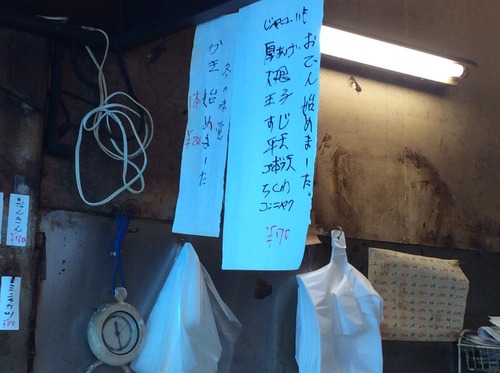 おでん始めました。
じゃがいも
厚あげ
大根
玉子
すじ
平天
ごぼ天
ちくわ
コンニャク
¥170
冬の味覚
かき始めました
なんきん
¥170